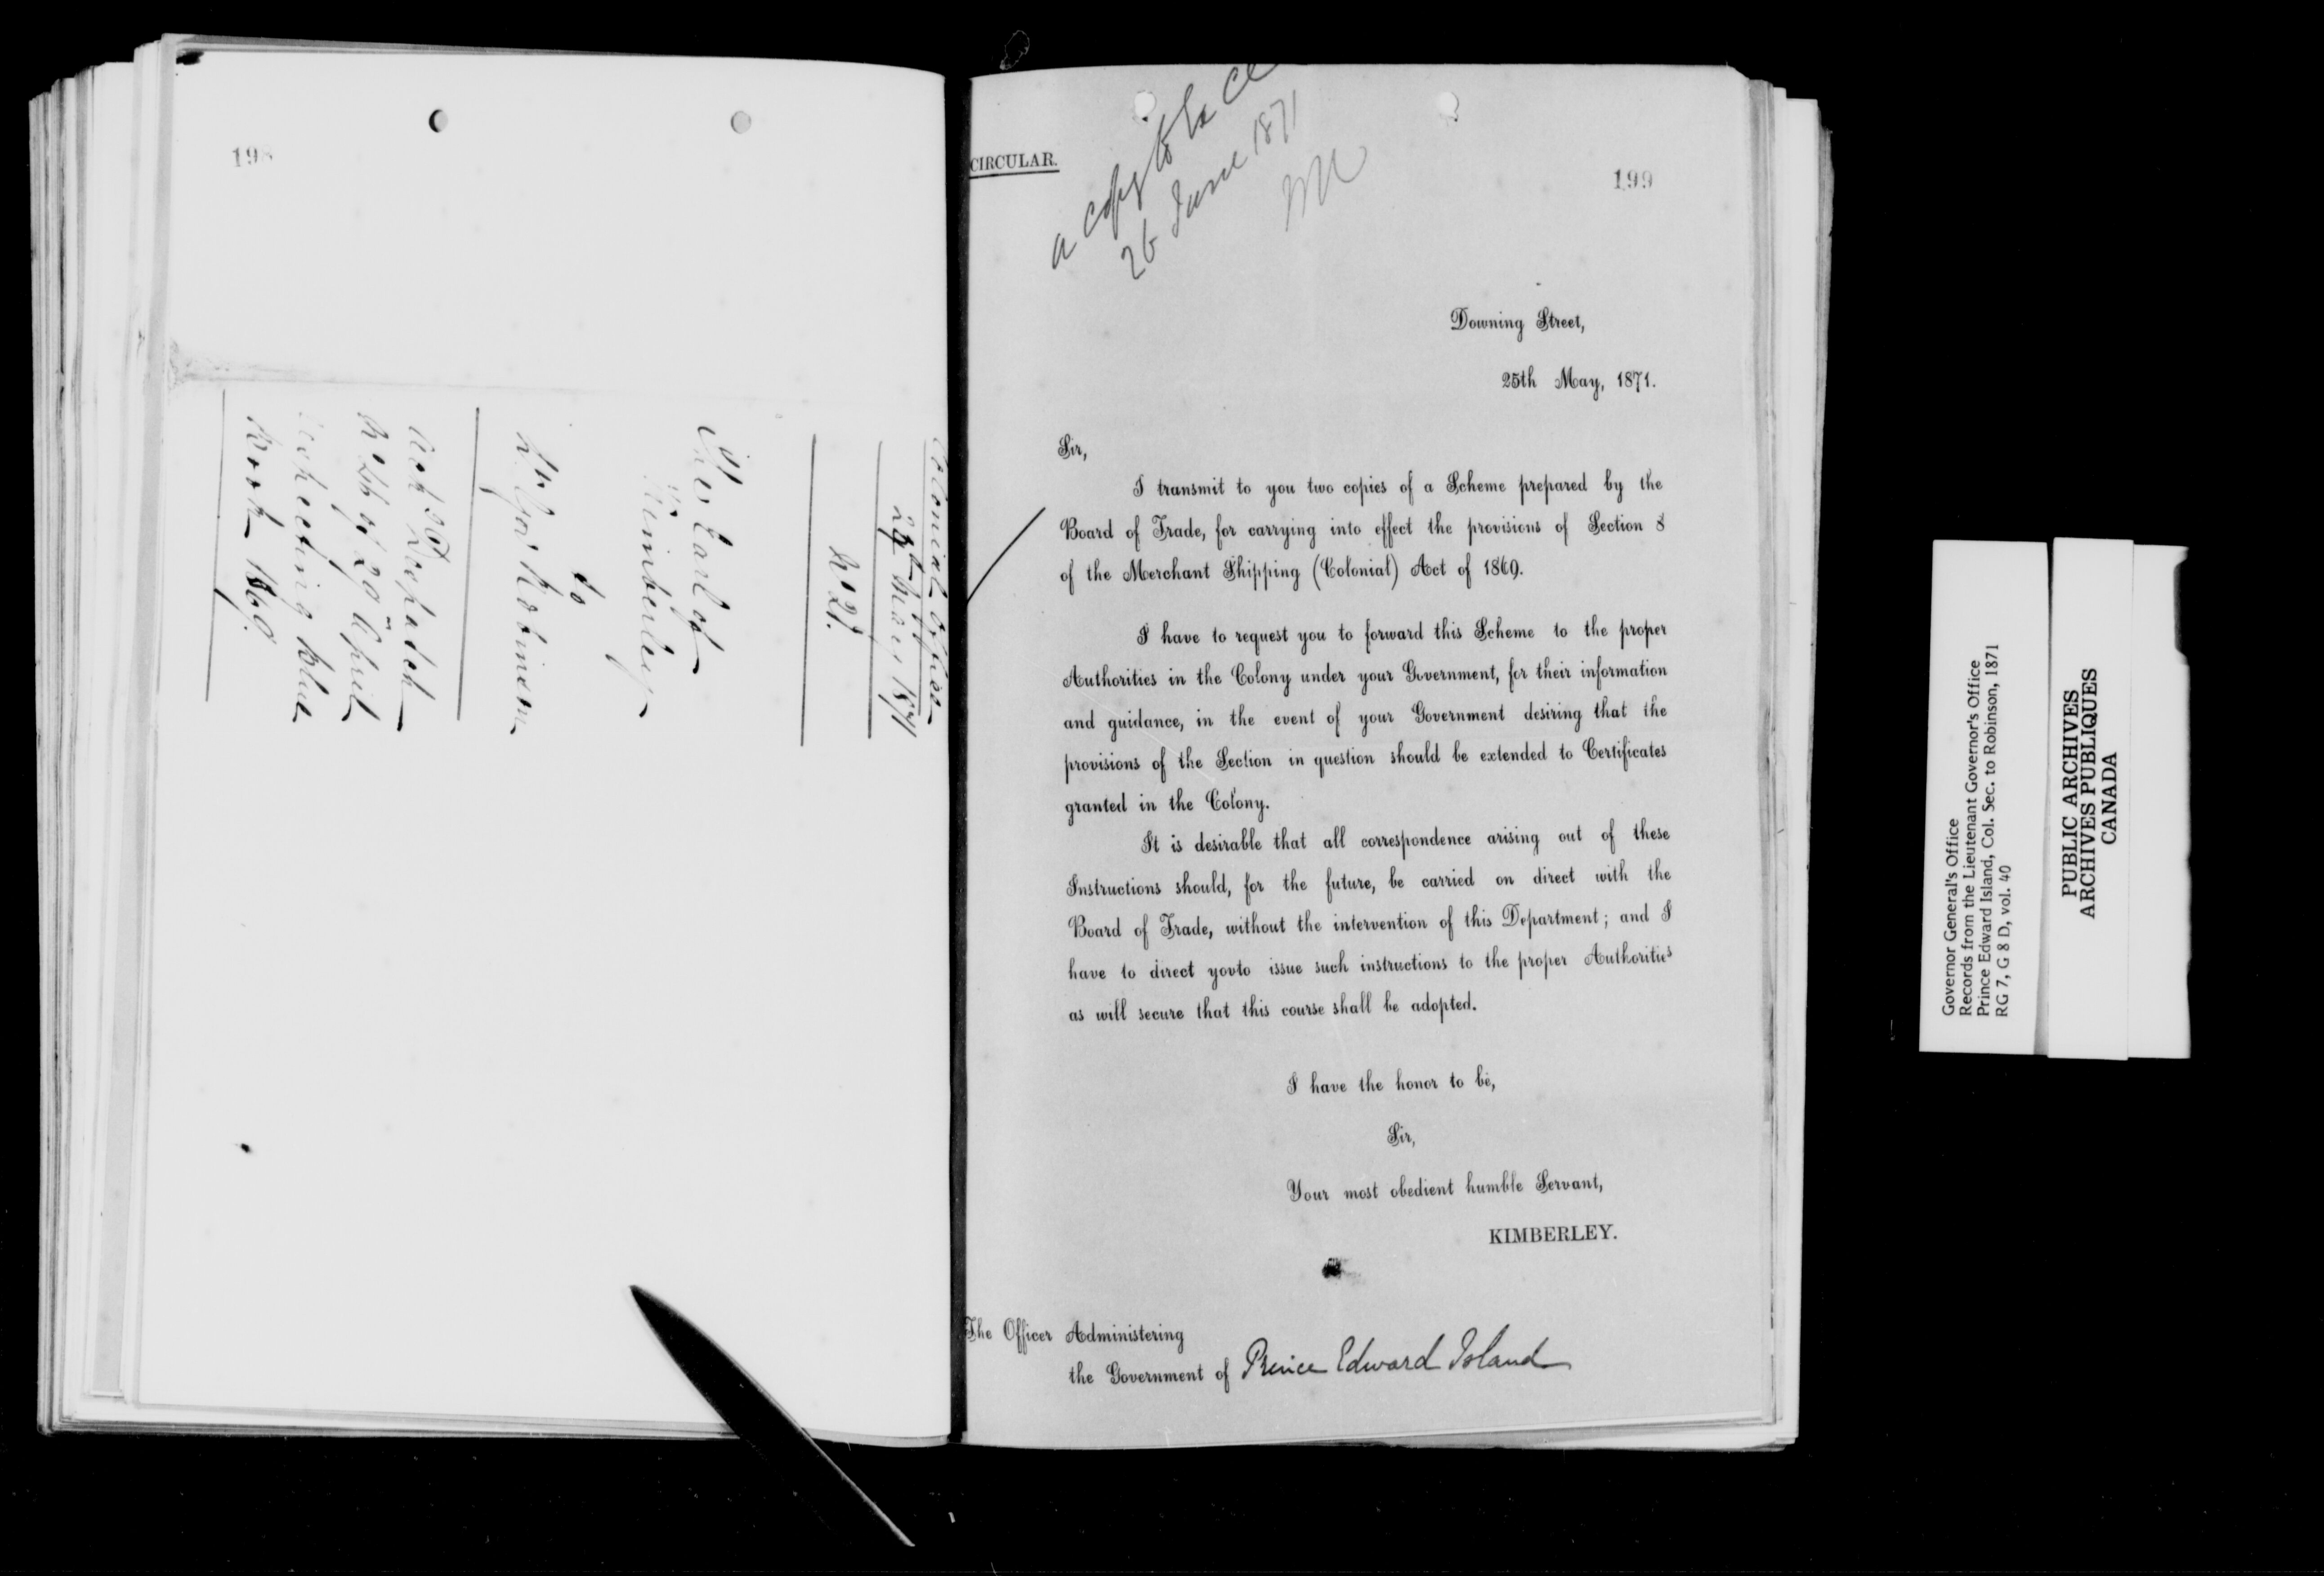 Colonial Office
29th May 1871
No 21.
The Earl of
Kimberley
to
Lt. Gov. Robinson
Ack. Despatch
No 26 of 29 April
respecting Blue
Book 1869.
CIRCULAR.
a copy to Ex Cl
26 June 1871
199
Downing Street,
25th May, 1871.
Sir,
I transmit to you two copies of a Scheme prepared by the
Board of Trade, for carrying into effect the provisions of Section 8
of the Merchant Shipping (Colonial) Act of 1869.
I have to request you to forward this Scheme to the proper
Authorities in the Colony under your Government, for their information
and guidance, in the event of your Government desiring that the
provisions of the Section in question should be extended to Certificates
granted in the Colony.
It is desirable that all correspondence arising out of these
Instructions should, for the future, be carried on direct with the
Board of Trade, without the intervention of this Department; and I
have to direct you to issue such instructions to the proper Authorities
as will secure that this course shall be adopted.
I have the honor to be,
Sir,
Your most obedient humble Servant,
KIMBERLEY.
The Officer Administering
the Government of Prince Edward Island
Governor General's Office
Records from the Lieutenant Governor's Office
Prince Edward Island, Col. Sec. to Robinson, 1871
RG 7, G 8 D, vol. 40
PUBLIC ARCHIVES
ARCHIVES PUBLIQUES
CANADA